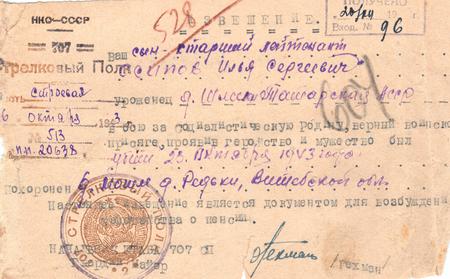 НКО-СССР
528
ИЗВЕЩЕНИЕ.
ПОЛУЧЕНО
Вход. № 96
707
Ваш сын - старший лейтенант
Стрелковый Полк
Осипов Илья Сергеевич
строевая
уроженец д.
Татарская АССР
6 октября 1943
в бою за социалистическую Родину, верный воинской
№ 513
присяге, проявив геройство и мужество был
п.п. 20638
1943 года.
Похоронен
д. Редьки, Витебской обл.
Настоящее извещение является документом для возбуждения
ходатайства о пенсии.
НАЧАЛЬНИК ШТАБА 707 СП
гвардии майор
/Гехман/